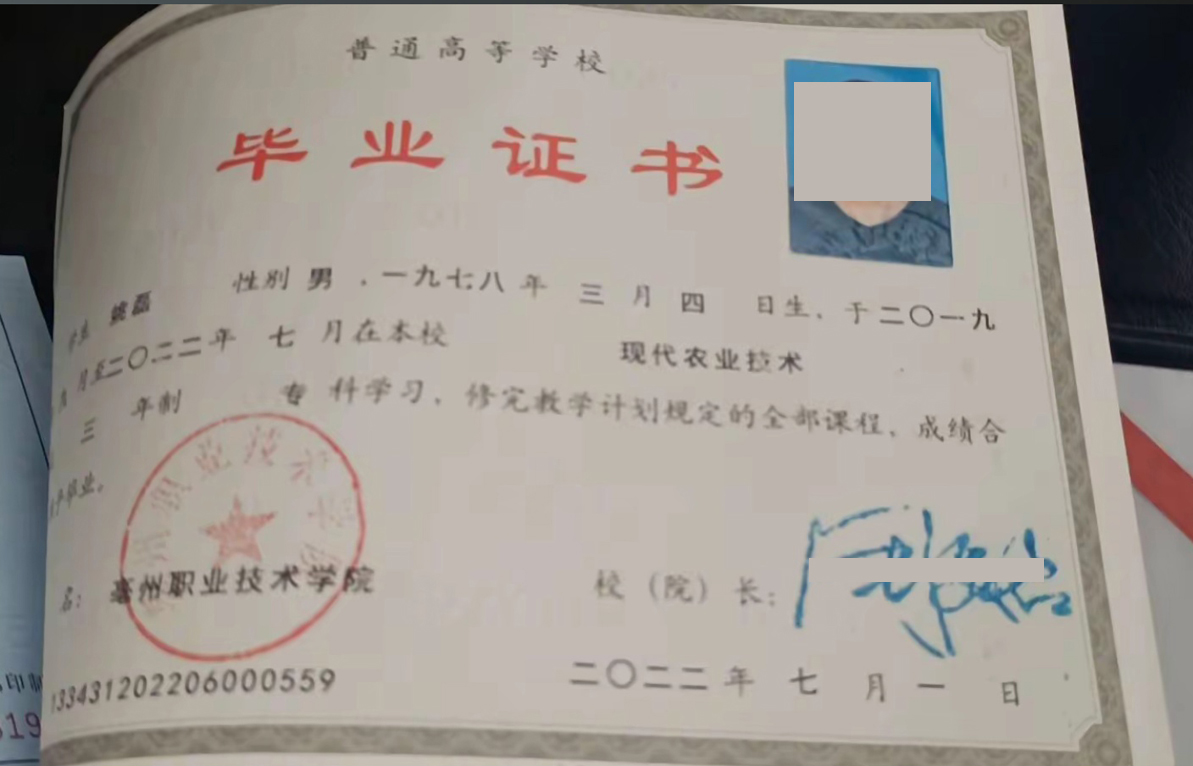 普通高等学校
毕业证书
学生 姚磊 性别 男 ，一九七八 年 三 月 四 日生，于二〇一九
九 月至二〇二二年 七 月在本校 现代农业技术
三 年制 专 科学习，修完教学计划规定的全部课程，成绩合
准予毕业。
州职业技术学院
名： 亳州职业技术学院 校（院）长：
133431202206000559 二〇二二 年 七 月 一 日
印
519